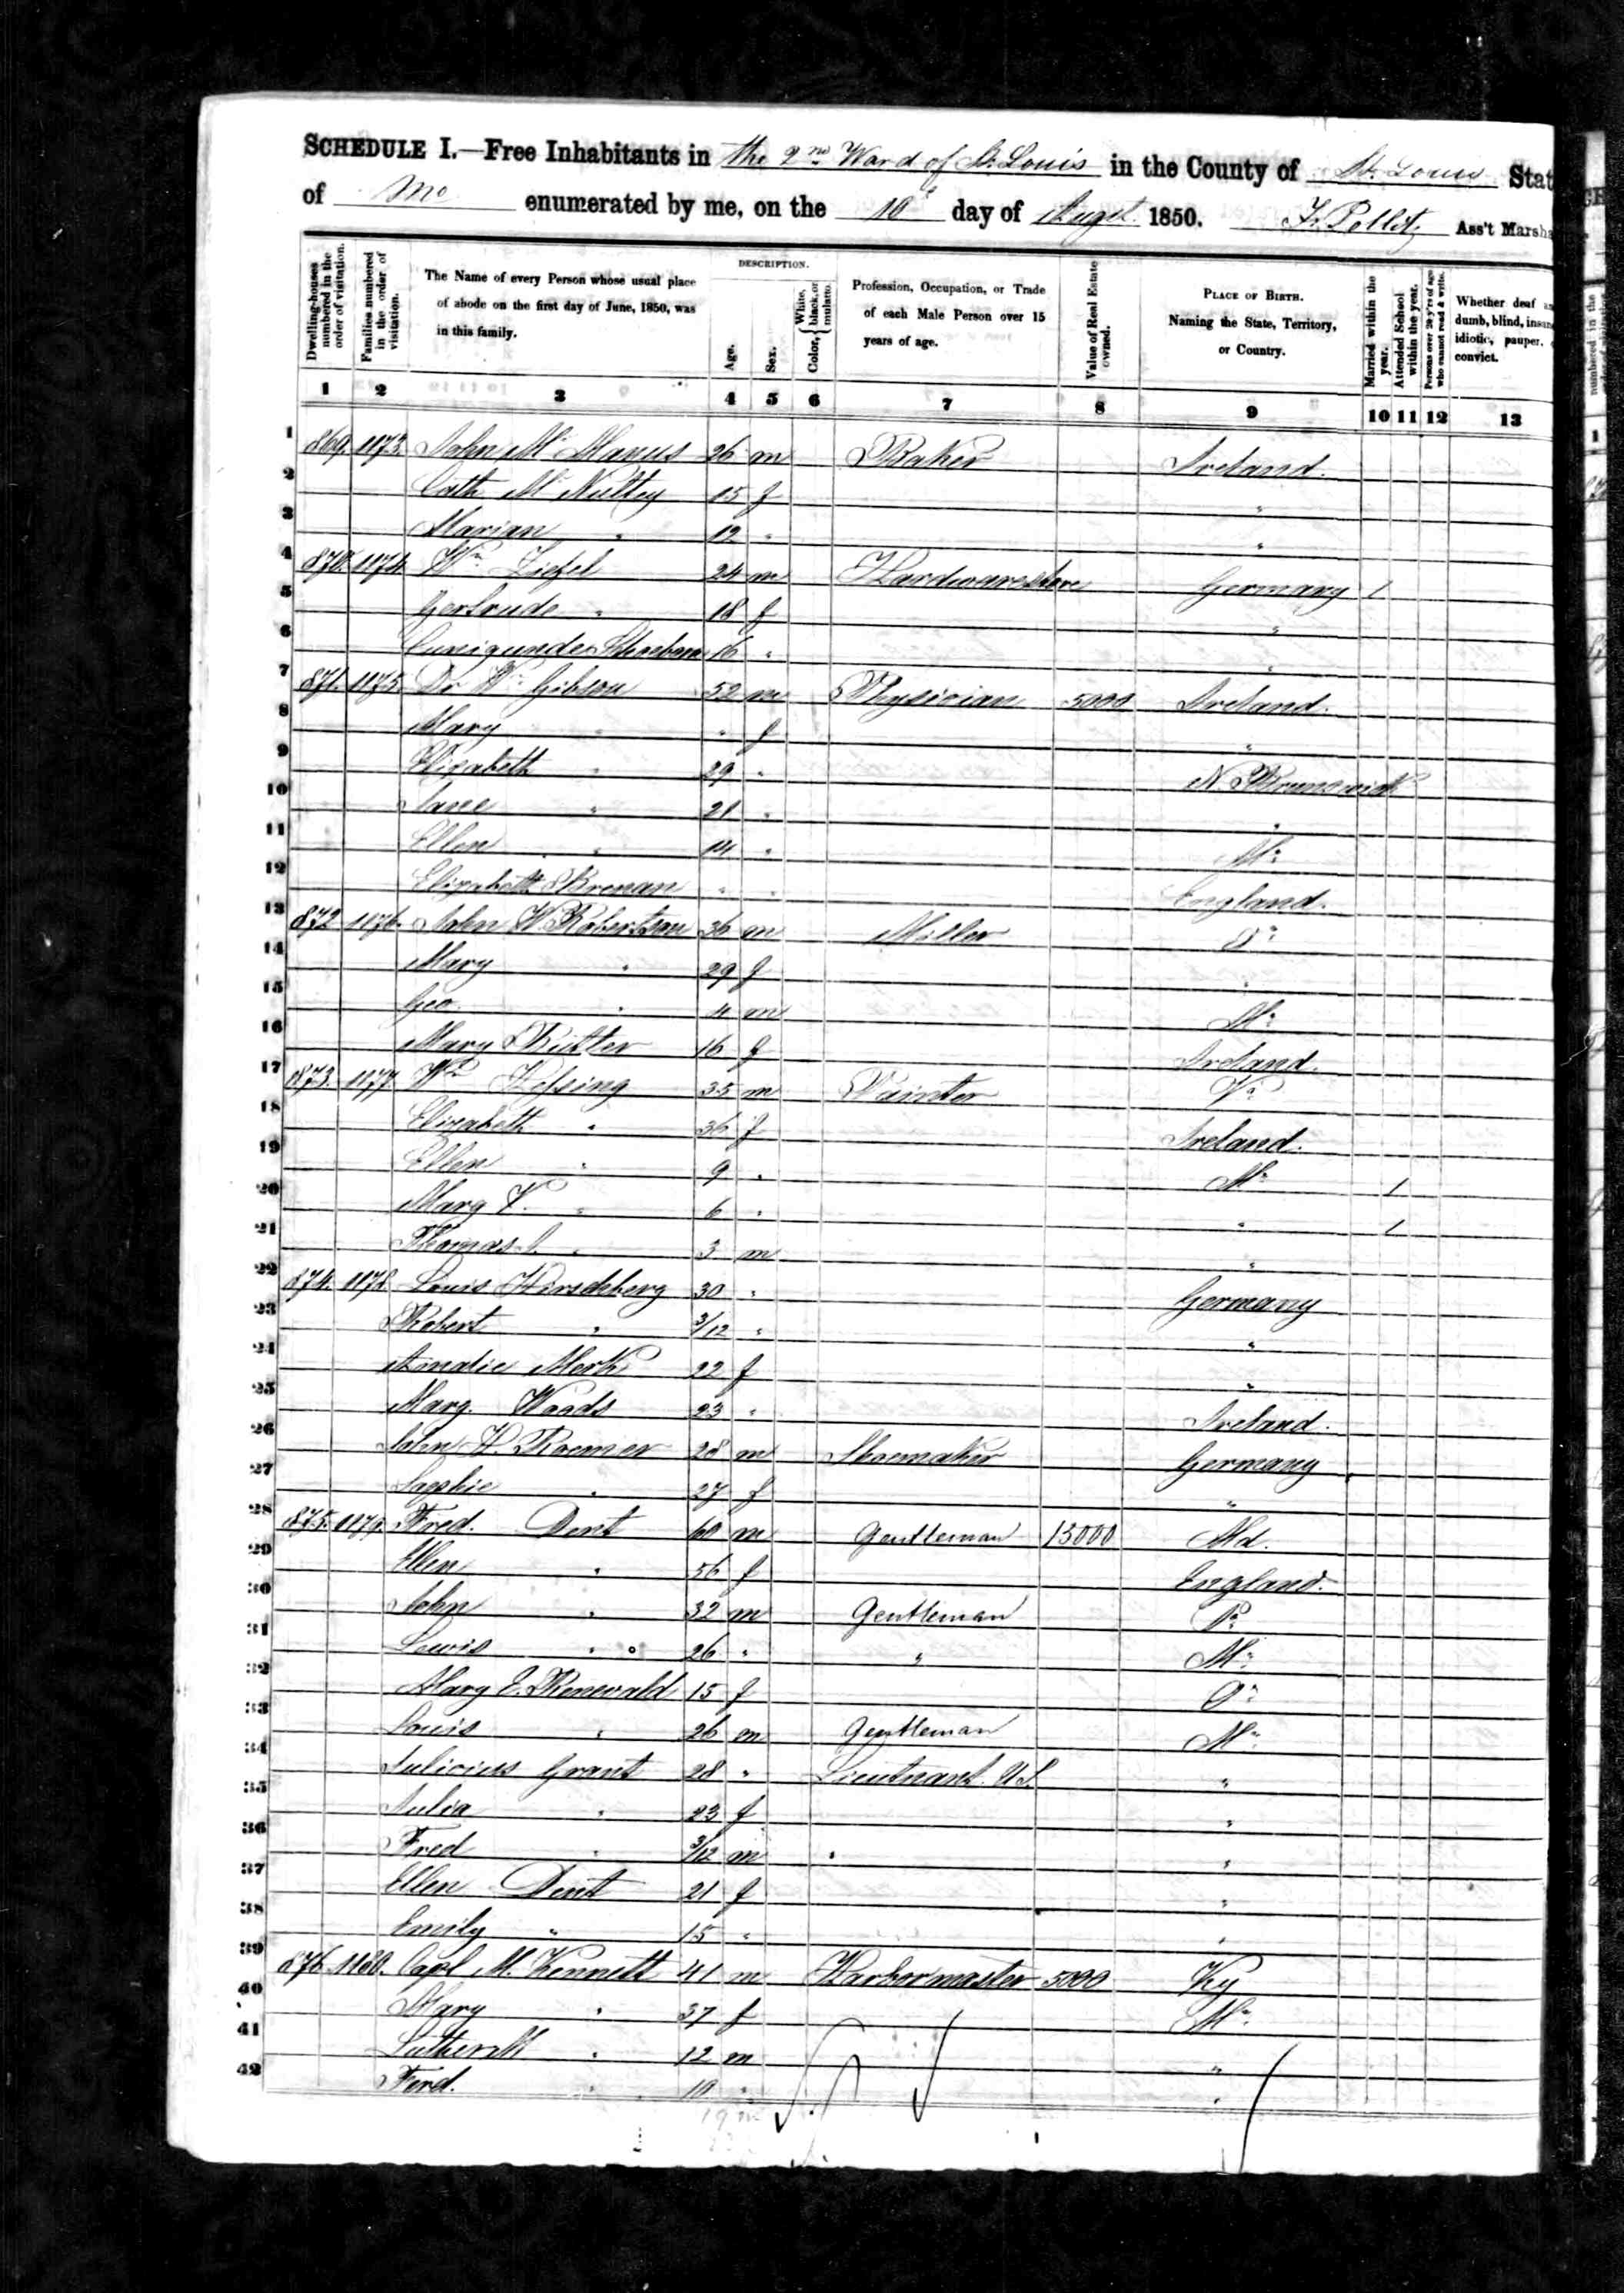 SCHEDULE I.—Free Inhabitants in the 2nd Ward of St. Louis in the County of St. Louis Stat
of Mo enumerated by me, on the 10 day of Augst 1850. Ass't Marsha
Dwelling-houses numbered in the order of visitation.
Families numbered in the order of visitation.
The Name of every Person whose usual place of abode on the first day of June, 1850, was in this family.
DESCRIPTION.
Age.
Sex.
Color, { White, black, or mulatto.
Profession, Occupation, or Trade of each Male Person over 15 years of age.
Value of Real Estate owned.
PLACE OF BIRTH. Naming the State, Territory, or Country.
Married within the year.
Attended School within the year.
Persons over 20 y'rs of age who cannot read & write.
Whether deaf an dumb, blind, insane idiotic, pauper, convict.
1 2 3 4 5 6 7 8 9 10 11 12 13
1 869. 1173. John Mc Manus 26 m Baker Ireland.
2 Cath Mc Nultey 15 f "
3 Marian " 12 " "
4 870. 1174 Wm 24 m Hardwarestore Germany 1
5 Gertrude " 18 f "
6 Cunigunde 16 " "
7 871. 1175. Dr Wm Gibson 52 m Physician 5000 Ireland.
8 Mary " " f "
9 Elizabeth " 29 " N. Brunswick
10 Jane " 21 " "
11 Ellen " 14 " Mo
12 Elizabeth " " England.
13 872 1176. John W. Robertson 36 m Miller Do
14 Mary " 29 f "
15 Geo. " 4 m Mo
16 Mary Butler 16 f Ireland.
17 873. 1177 Wm 35 m Painter Va
18 Elizabeth " 36 f Ireland.
19 Ellen " 9 " Mo 1
20 Mary V. " 6 " " 1
21 Thomas J. " 3 m "
22 874. 1178 Louis Hirschberg 30 " Germany
23 Robert " 3/12 " "
24 Amalie Merk 22 f "
25 Marg. Woods 23 " Ireland.
26 John H. Roemer 28 m Shoemaker Germany
27 Sophie " 27 f "
28 875. 1179. Fred. Dent 60 m Gentleman 15000 Md.
29 Ellen " 56 f England.
30 John " 32 m Gentleman Pa
31 Lewis " 26 " " Mo
32 Mary E. 15 f
33 Louis " 26 m Gentleman Mo
34 Grant 28 " Lieutnant. U.S. "
35 Julia " 23 f "
36 Fred " 3/12 m "
37 Ellen Dent 21 f "
38 Emily " 15 " "
39 876 1180. Capt M. Kennett 41 m Harbormaster 5000 Ky
40 Mary " 37 f Mo
41 Luther M " 12 m "
42 Ferd. " 10 " "